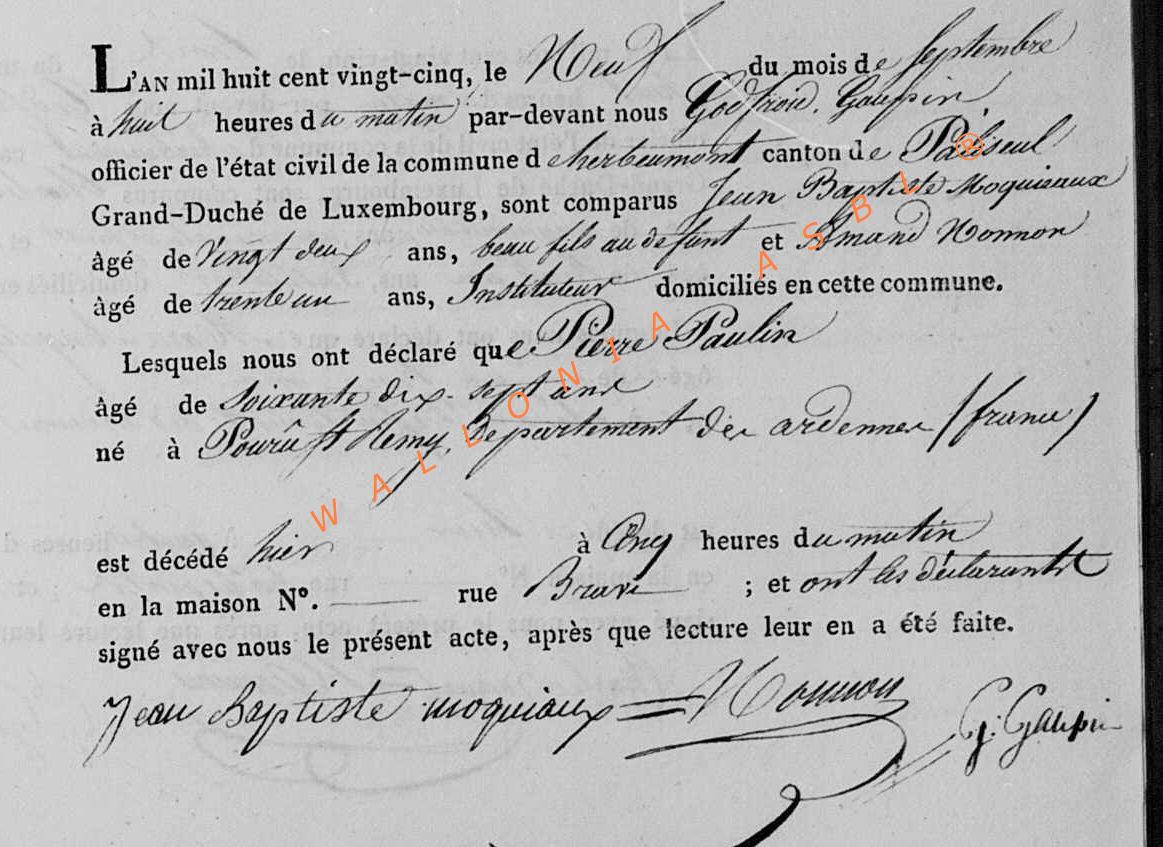 L'AN mil huit cent vingt-cinq, le Neuf du mois de Septembre
à huit heures du matin par-devant nous Godfroid Gaupin,
officier de l'état civil de la commune d'herbeumont canton de Paliseul
Grand-Duché de Luxembourg, sont comparus Jean Baptiste Moquiaux
âgé de Vingt deux ans, beau fils au défunt et Amand Nonnon
âgé de trente un ans, Instituteur domiciliés en cette commune.
Lesquels nous ont déclaré que Pierre Paulin
âgé de soixante dix-sept ans
né à Pourû St Remy, Département des ardennes (france)
est décédé hier à Cinq heures du matin
en la maison N°. rue ; et ont les déclarants
signé avec nous le présent acte, après que lecture leur en a été faite.
Jean Baptiste moquiaux Nonnon G. Gaupin
WALLONIA ASBL ®